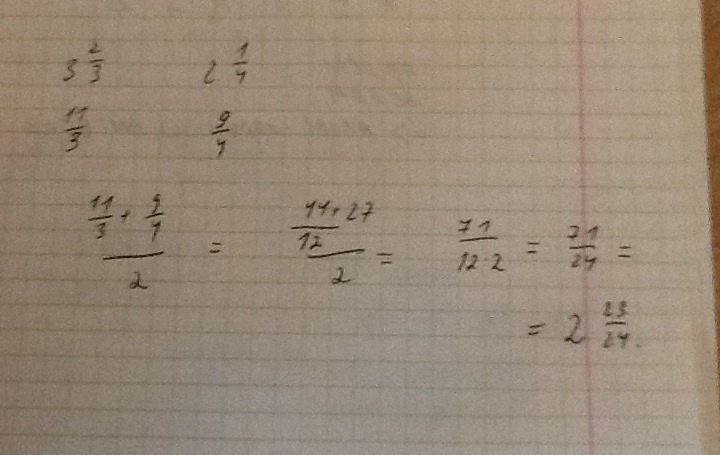 3 2/3 2 1/4
11/3 9/4
(11/3 + 9/4)/2 = ((44+27)/12)/2 = 71/(12·2) = 71/24 =
= 2 23/24.